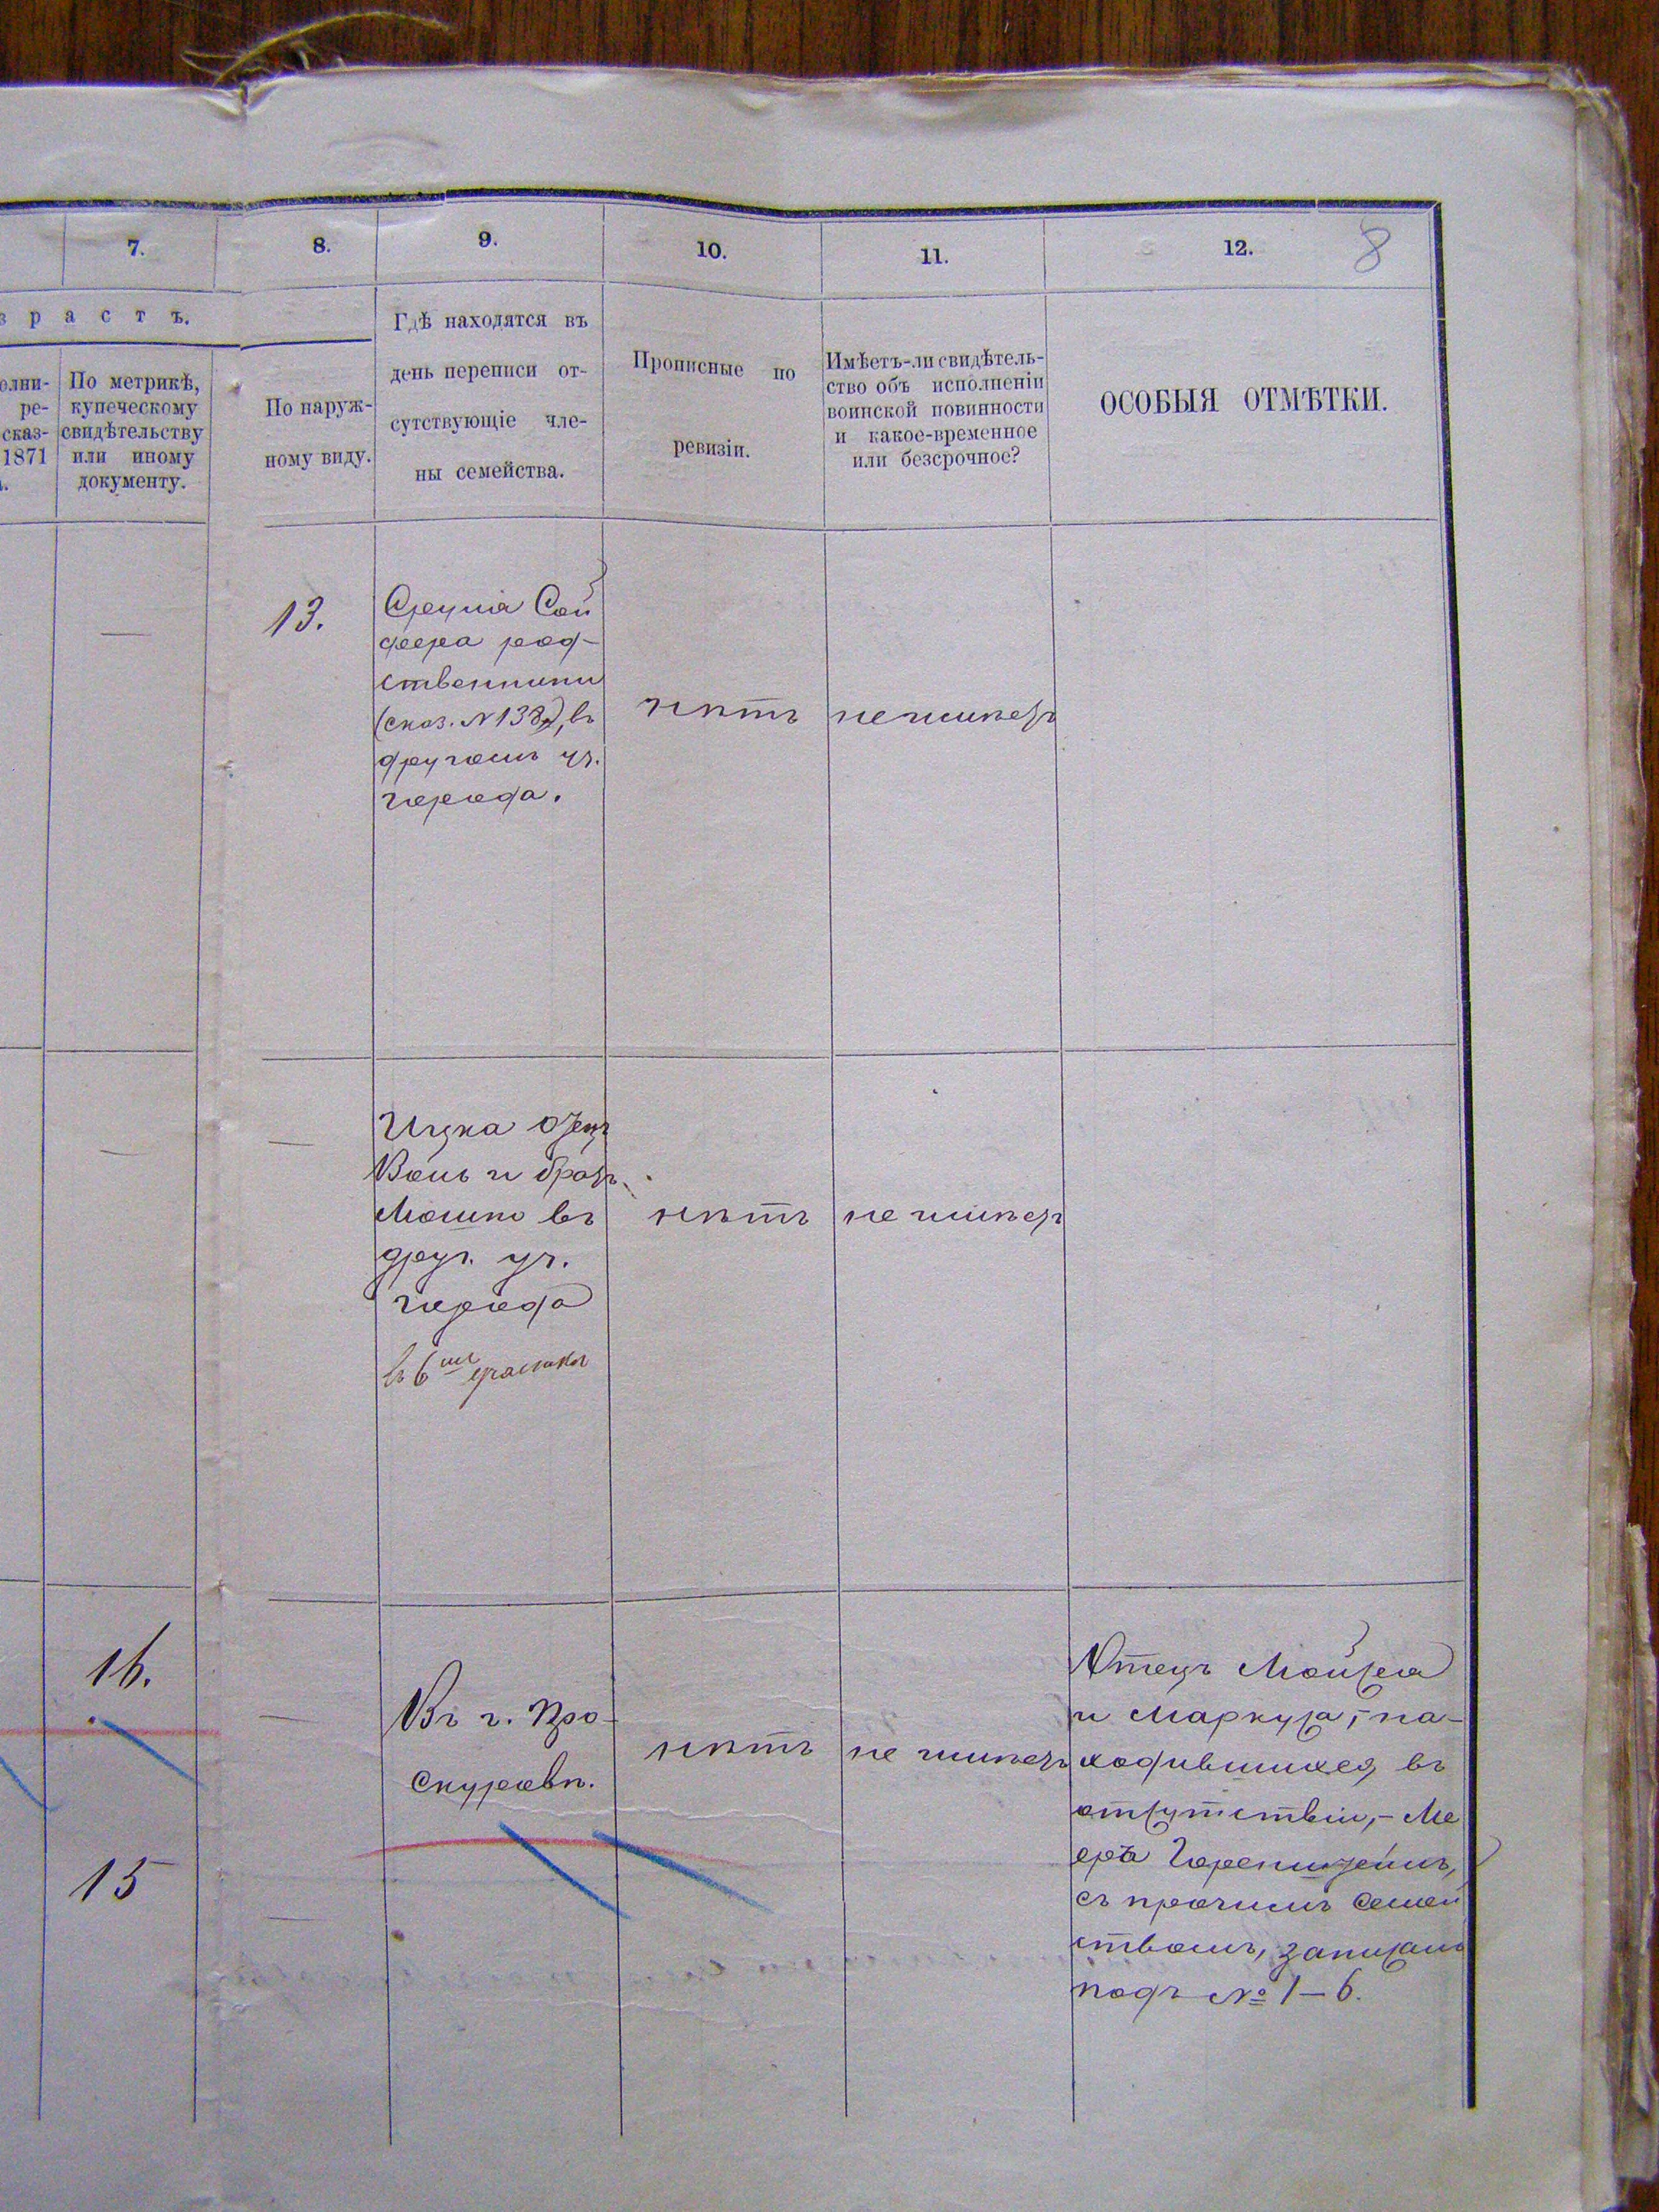 7.
8.
9.
10.
11.
12.
8
з р а с т ъ.
олни-
ре-
сказ-
1871
По метрикѣ,
купеческому
свидѣтельству
или иному
документу.
По наруж-
ному виду.
Гдѣ находятся въ
день переписи от-
сутствующіе чле-
ны семейства.
Прописные по
ревизіи.
Имѣетъ-ли свидѣтель-
ство объ исполненіи
воинской повинности
и какое-временное
или безсрочное?
ОСОБЫЯ ОТМѢТКИ.
13.
Сой
фера род-
ственники
(сказ. № 138), въ
другомъ уч.
города.
нѣтъ
не имѣетъ
Ицка отецъ
Вольъ и братъ
Мошко въ
друг. уч.
города
въ 6мъ участкѣ
нѣтъ
не имѣетъ
16.
15
Въ г. Про-
скуровѣ.
нѣтъ
не имѣетъ
Отецъ Мойсея
и Маркуса, на-
ходившихся въ
отсутствіи,- Ме
еръ
съ прочимъ семей
ствомъ, записанъ
подъ № 1-6.